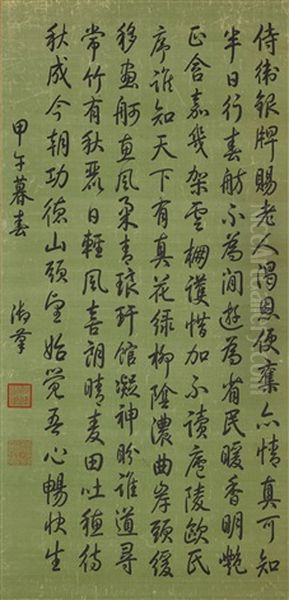 侍衛銀牌賜老人渴恩便奮亦情真可知
半日行春舫不為閒遊為省民暖香明艷
正含嘉幾架雲棚護惜加不讀廬陵歐氏
序誰知天下有真花綠柳陰濃曲岸頭緩
移畫舸惠風柔青琅玕館凝神盼誰道尋
常竹有秋麗日輕風喜朗晴麥田吐穗待
秋成今朝功德山頭望始覺吾心暢快生
甲午暮春 御筆